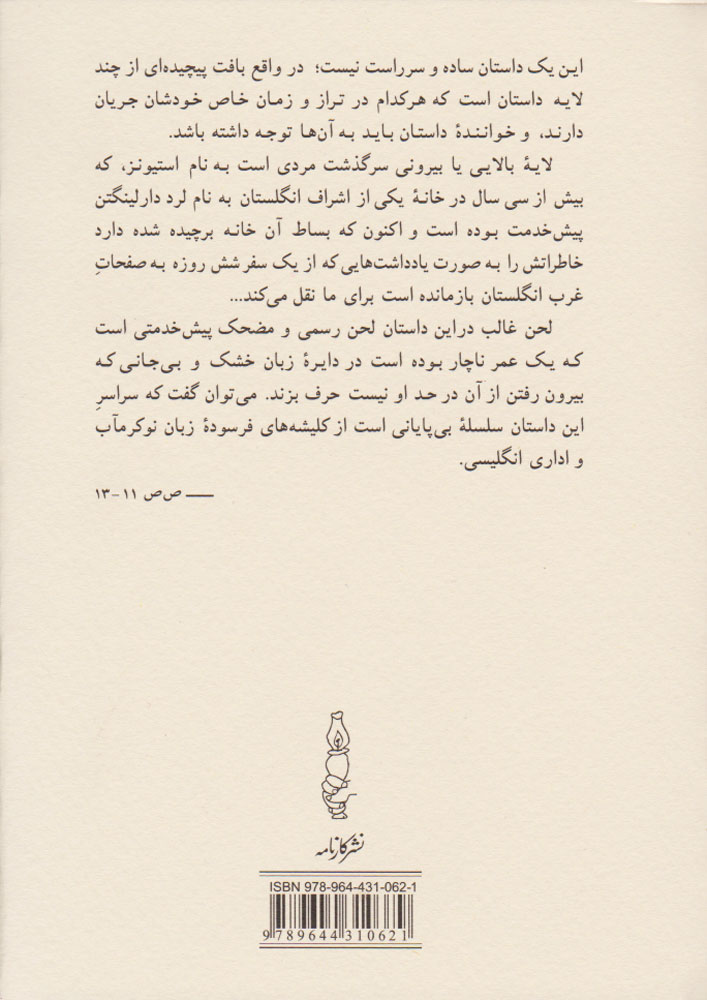 این یک داستان ساده و سرراست نیست؛ در واقع بافت پیچیده‌ای از چند
لایه داستان است که هرکدام در تراز و زمان خاص خودشان جریان
دارند، و خوانندهٔ داستان باید به آن‌ها توجه داشته باشد.
لایهٔ بالایی یا بیرونی سرگذشت مردی است به نام استیونز، که
بیش از سی سال در خانهٔ یکی از اشراف انگلستان به نام لرد دارلینگتن
پیش‌خدمت بوده است و اکنون که بساط آن خانه برچیده شده دارد
خاطراتش را به صورت یادداشت‌هایی که از یک سفر شش روزه به صفحاتِ
غرب انگلستان بازمانده است برای ما نقل می‌کند...
لحن غالب دراین داستان لحن رسمی و مضحک پیش‌خدمتی است
که یک عمر ناچار بوده است در دایرهٔ زبان خشک و بی‌جانی که
بیرون رفتن از آن در حد او نیست حرف بزند. می‌توان گفت که سراسرِ
این داستان سلسلهٔ بی‌پایانی است از کلیشه‌های فرسودهٔ زبان نوکرمآب
و اداری انگلیسی.
—— ص‌ص ۱۱-۱۳
نشر کارنامه
ISBN 978-964-431-062-1
9 789644 310621